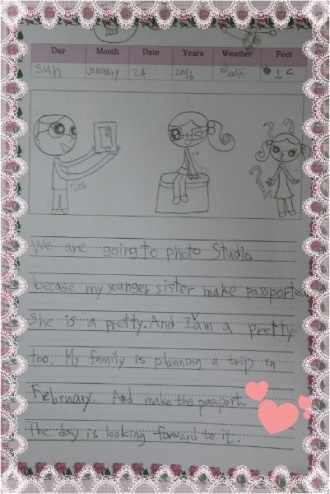 Day Month Date Years Weather Feel
Sun January 24 2016
We are going to photo Studio
becase my younger sister make passport
She is a pretty. And I am a pretty
too. My family is planning a trip in
February. And make the passport.
The day is looking forward to it.